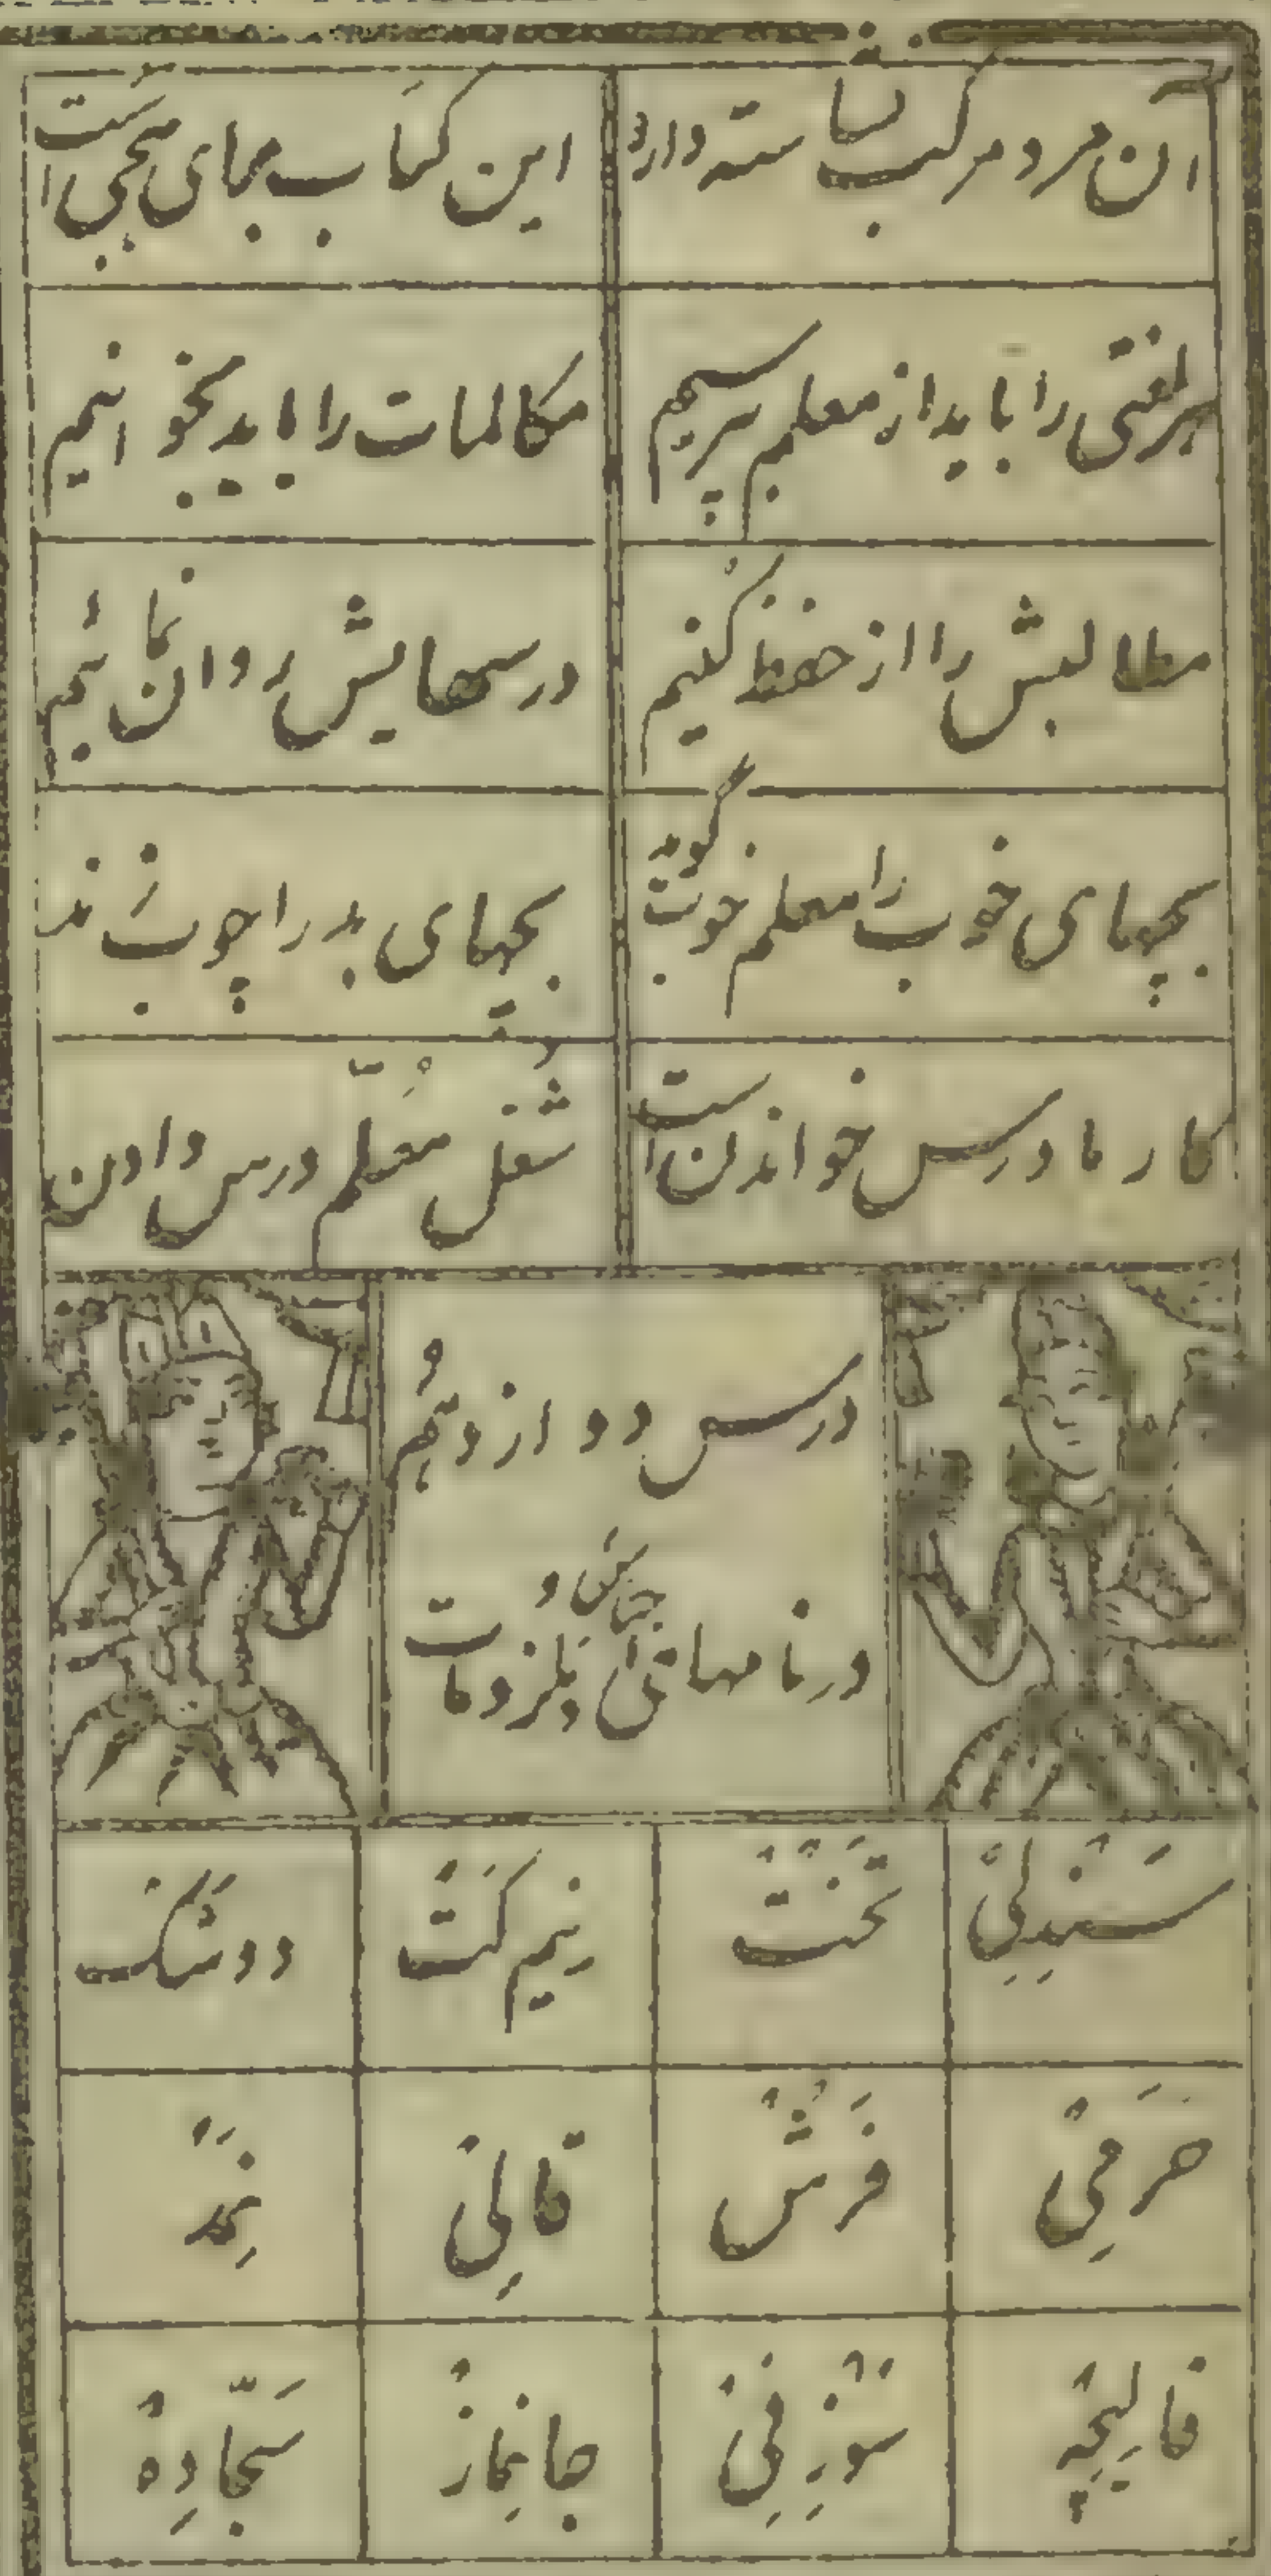 آن مرد مرکب شایسته دارد
این کتاب بجای محبی است
هر لغتی را باید از معلم بپرسیم
مکالمات را باید بخوانیم
مطالبش را از حفظ کنیم
درسهایش روان نمائیم
بچهای خوب را معلم خوب گوید
بچهای بد را چوب زند
کار ما درس خواندن است
شغل معلم درس دادن
درس دوازدهم
در نامهای اجناس و ملزومات
سَنْدِلیْ
تَخْتْ
نیم کَتْ
دوشَکْ
حَرَمیْ
فَرْشْ
قالیْ
نَمَدْ
قالیچِهْ
سوزَنیْ
جانمازْ
سَجّادِهْ